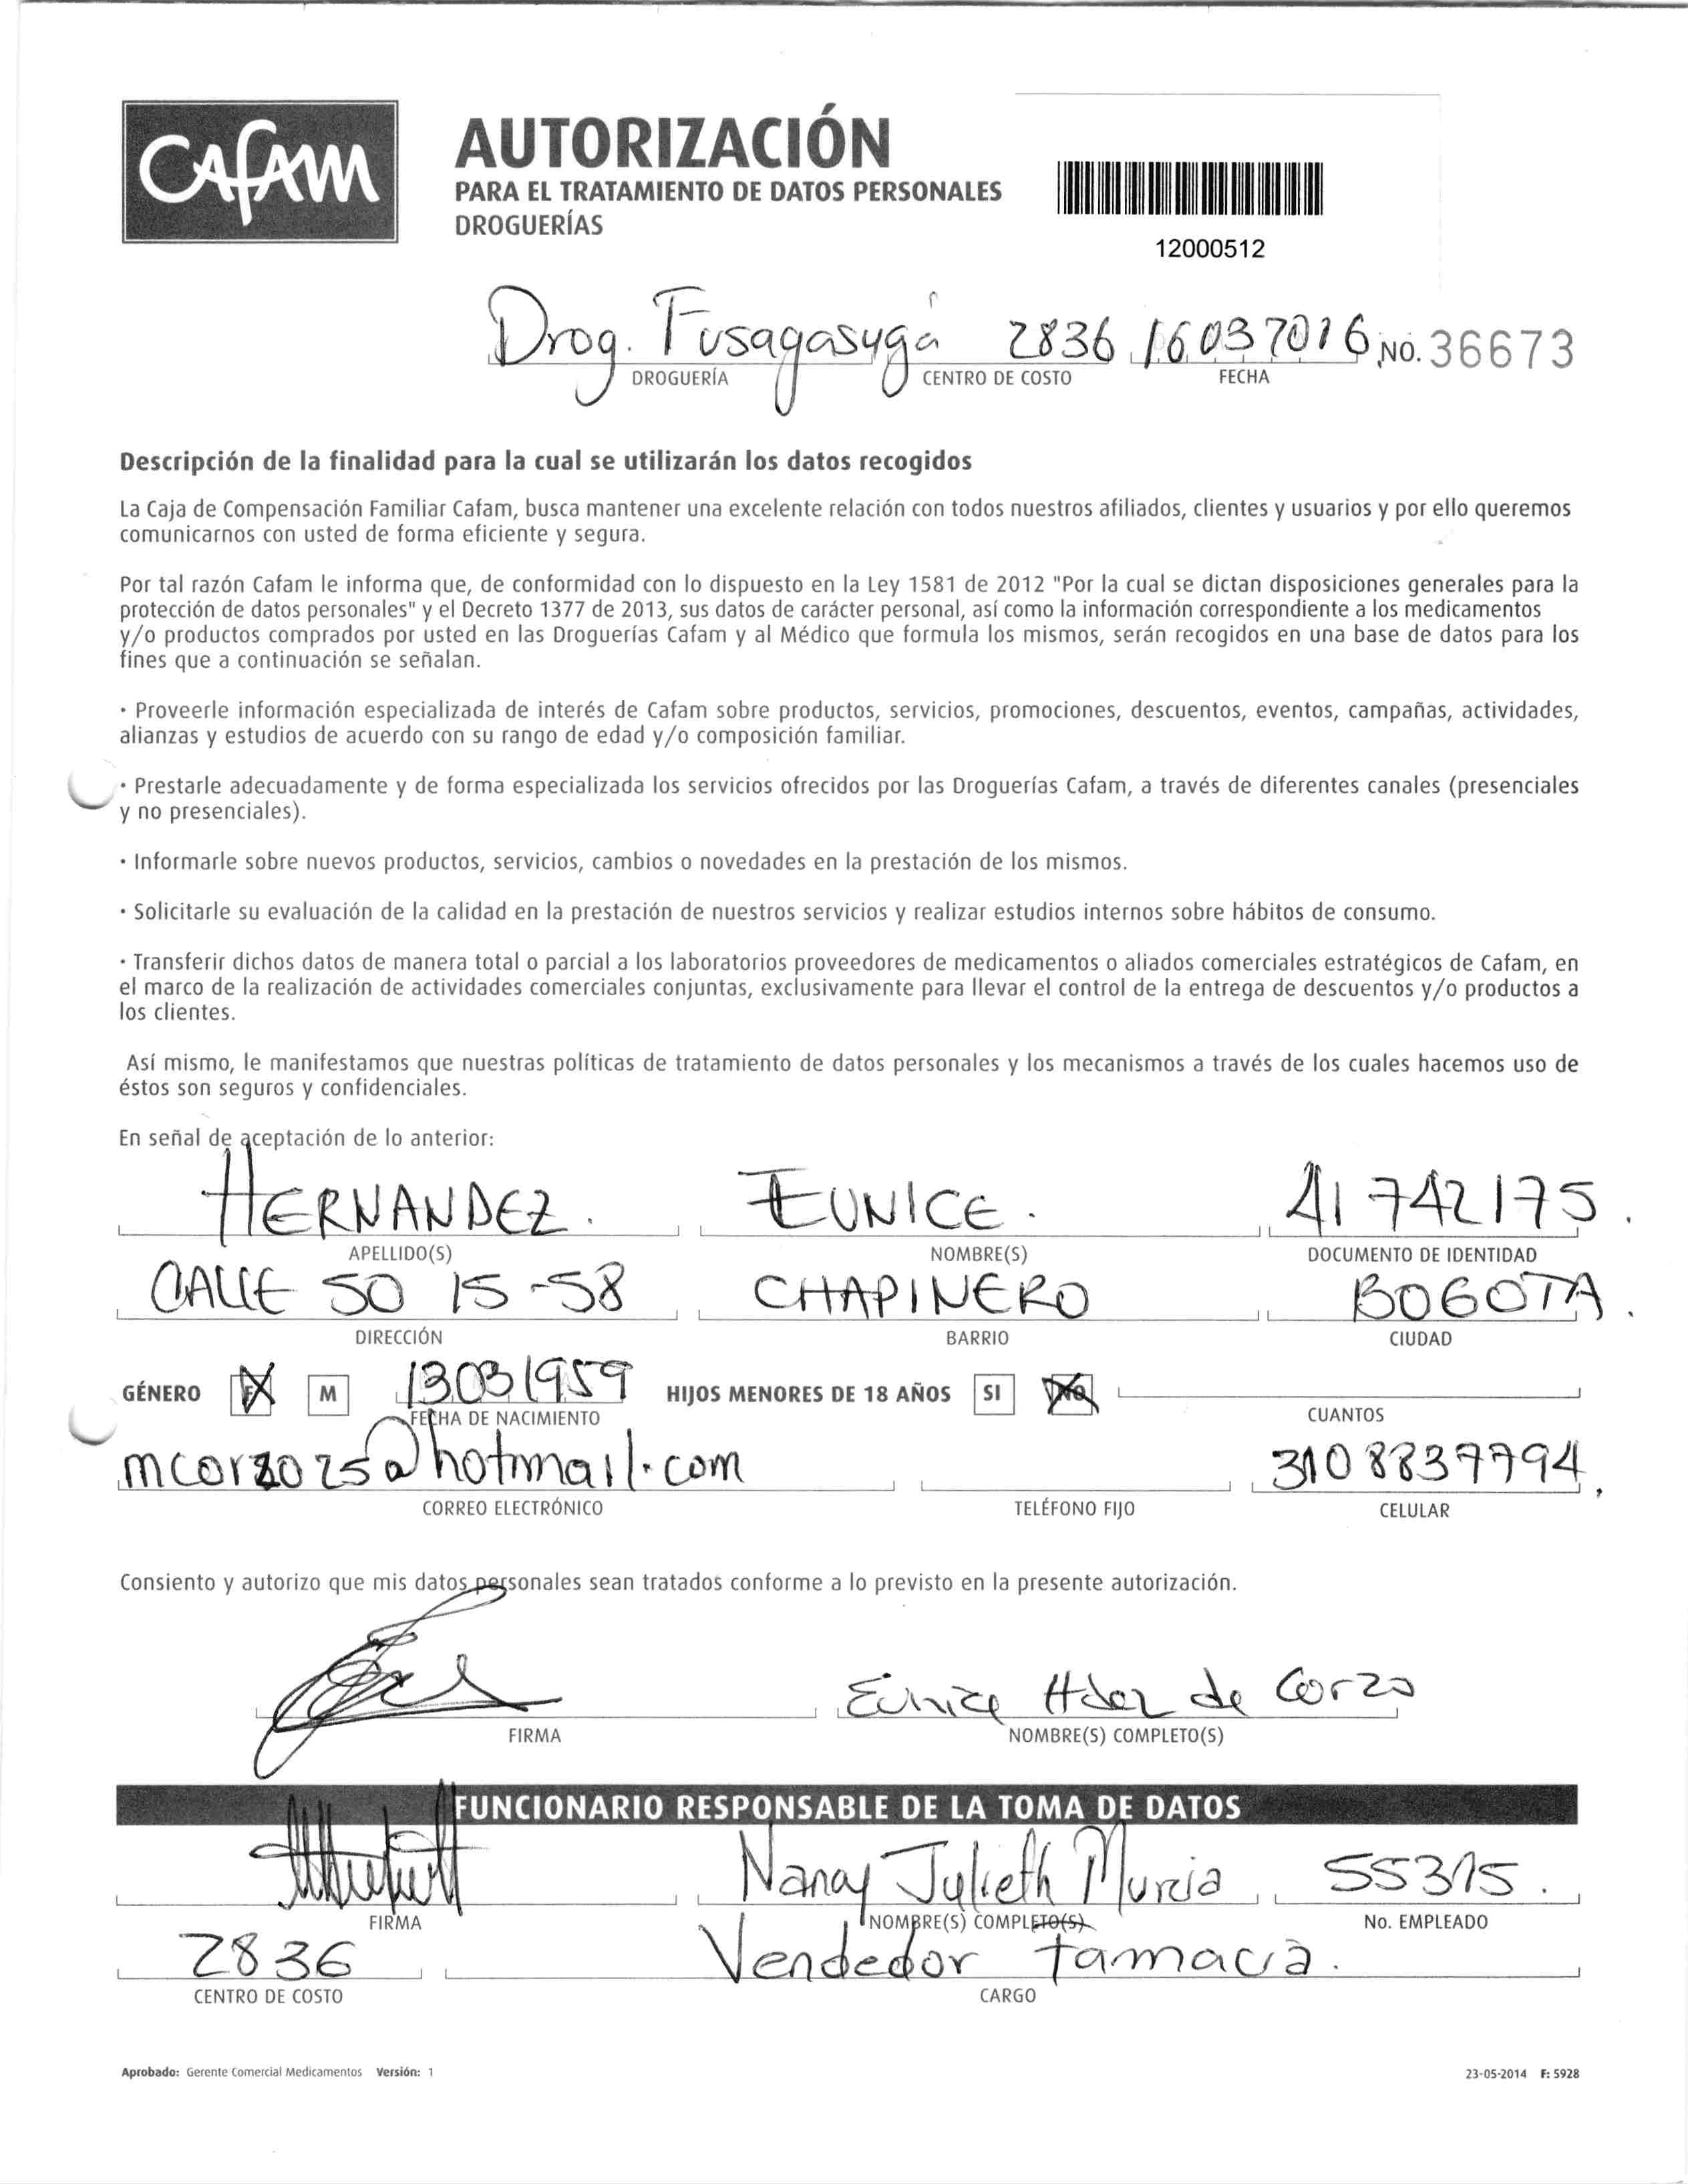 CAFAM
AUTORIZACIÓN
PARA EL TRATAMIENTO DE DATOS PERSONALES
DROGUERÍAS
12000512
Drog. Fusagasuga 2836 16 03 2016 NO. 36673
DROGUERÍA CENTRO DE COSTO FECHA
Descripción de la finalidad para la cual se utilizarán los datos recogidos
La Caja de Compensación Familiar Cafam, busca mantener una excelente relación con todos nuestros afiliados, clientes y usuarios y por ello queremos
comunicarnos con usted de forma eficiente y segura.
Por tal razón Cafam le informa que, de conformidad con lo dispuesto en la Ley 1581 de 2012 "Por la cual se dictan disposiciones generales para la
protección de datos personales" y el Decreto 1377 de 2013, sus datos de carácter personal, así como la información correspondiente a los medicamentos
y/o productos comprados por usted en las Droguerías Cafam y al Médico que formula los mismos, serán recogidos en una base de datos para los
fines que a continuación se señalan.
· Proveerle información especializada de interés de Cafam sobre productos, servicios, promociones, descuentos, eventos, campañas, actividades,
alianzas y estudios de acuerdo con su rango de edad y/o composición familiar.
· Prestarle adecuadamente y de forma especializada los servicios ofrecidos por las Droguerías Cafam, a través de diferentes canales (presenciales
y no presenciales).
· Informarle sobre nuevos productos, servicios, cambios o novedades en la prestación de los mismos.
· Solicitarle su evaluación de la calidad en la prestación de nuestros servicios y realizar estudios internos sobre hábitos de consumo.
· Transferir dichos datos de manera total o parcial a los laboratorios proveedores de medicamentos o aliados comerciales estratégicos de Cafam, en
el marco de la realización de actividades comerciales conjuntas, exclusivamente para llevar el control de la entrega de descuentos y/o productos a
los clientes.
Así mismo, le manifestamos que nuestras políticas de tratamiento de datos personales y los mecanismos a través de los cuales hacemos uso de
éstos son seguros y confidenciales.
En señal de aceptación de lo anterior:
HERNANDEZ. EUNICE. 41742175.
APELLIDO(S) NOMBRE(S) DOCUMENTO DE IDENTIDAD
CALLE 50 15-58 CHAPINERO BOGOTA.
DIRECCIÓN BARRIO CIUDAD
GÉNERO F M 13031959 HIJOS MENORES DE 18 AÑOS SI NO
FECHA DE NACIMIENTO CUANTOS
mcorzo25@hotmail.com 3108839794.
CORREO ELECTRÓNICO TELÉFONO FIJO CELULAR
Consiento y autorizo que mis datos personales sean tratados conforme a lo previsto en la presente autorización.
Eunice Hdez de Corzo
FIRMA NOMBRE(S) COMPLETO(S)
FUNCIONARIO RESPONSABLE DE LA TOMA DE DATOS
Nancy Julieth Murcia 55315.
FIRMA NOMBRE(S) COMPLETO(S) No. EMPLEADO
2836 Vendedor farmacia.
CENTRO DE COSTO CARGO
Aprobado: Gerente Comercial Medicamentos Versión: 1 23-05-2014 F: 5928